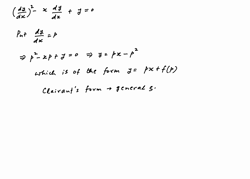 (dy/dx)² - x dy/dx + y = 0
Put dy/dx = p
⇒ p² - xp + y = 0 ⇒ y = px - p²
which is of the form y = px + f(p)
Clairaut's form → general s.